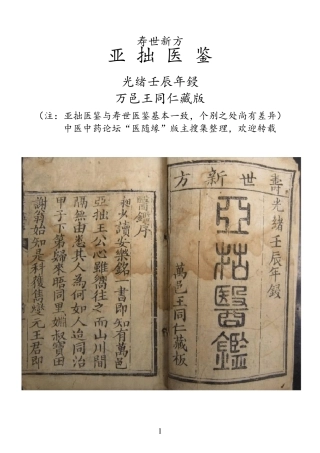 寿世新方
亚 拙 医 鉴
光绪壬辰年鋟
万邑王同仁藏版
（注：亚拙医鉴与寿世医鉴基本一致，个别之处尚有差异）
中医中药论坛“医随缘”版主搜集整理，欢迎转载
壽世新方
光緒壬辰年鋟
亞拙醫鑑
萬邑王同仁藏板
醫鑑序
少讀安樂銘一書即知有萬邑
亞拙王公心雖嚮往而山川間
之以未見其人為同治
甲子下第歸來晤同里叔寶田
謝翁始悉是科復雋經元王君即
1